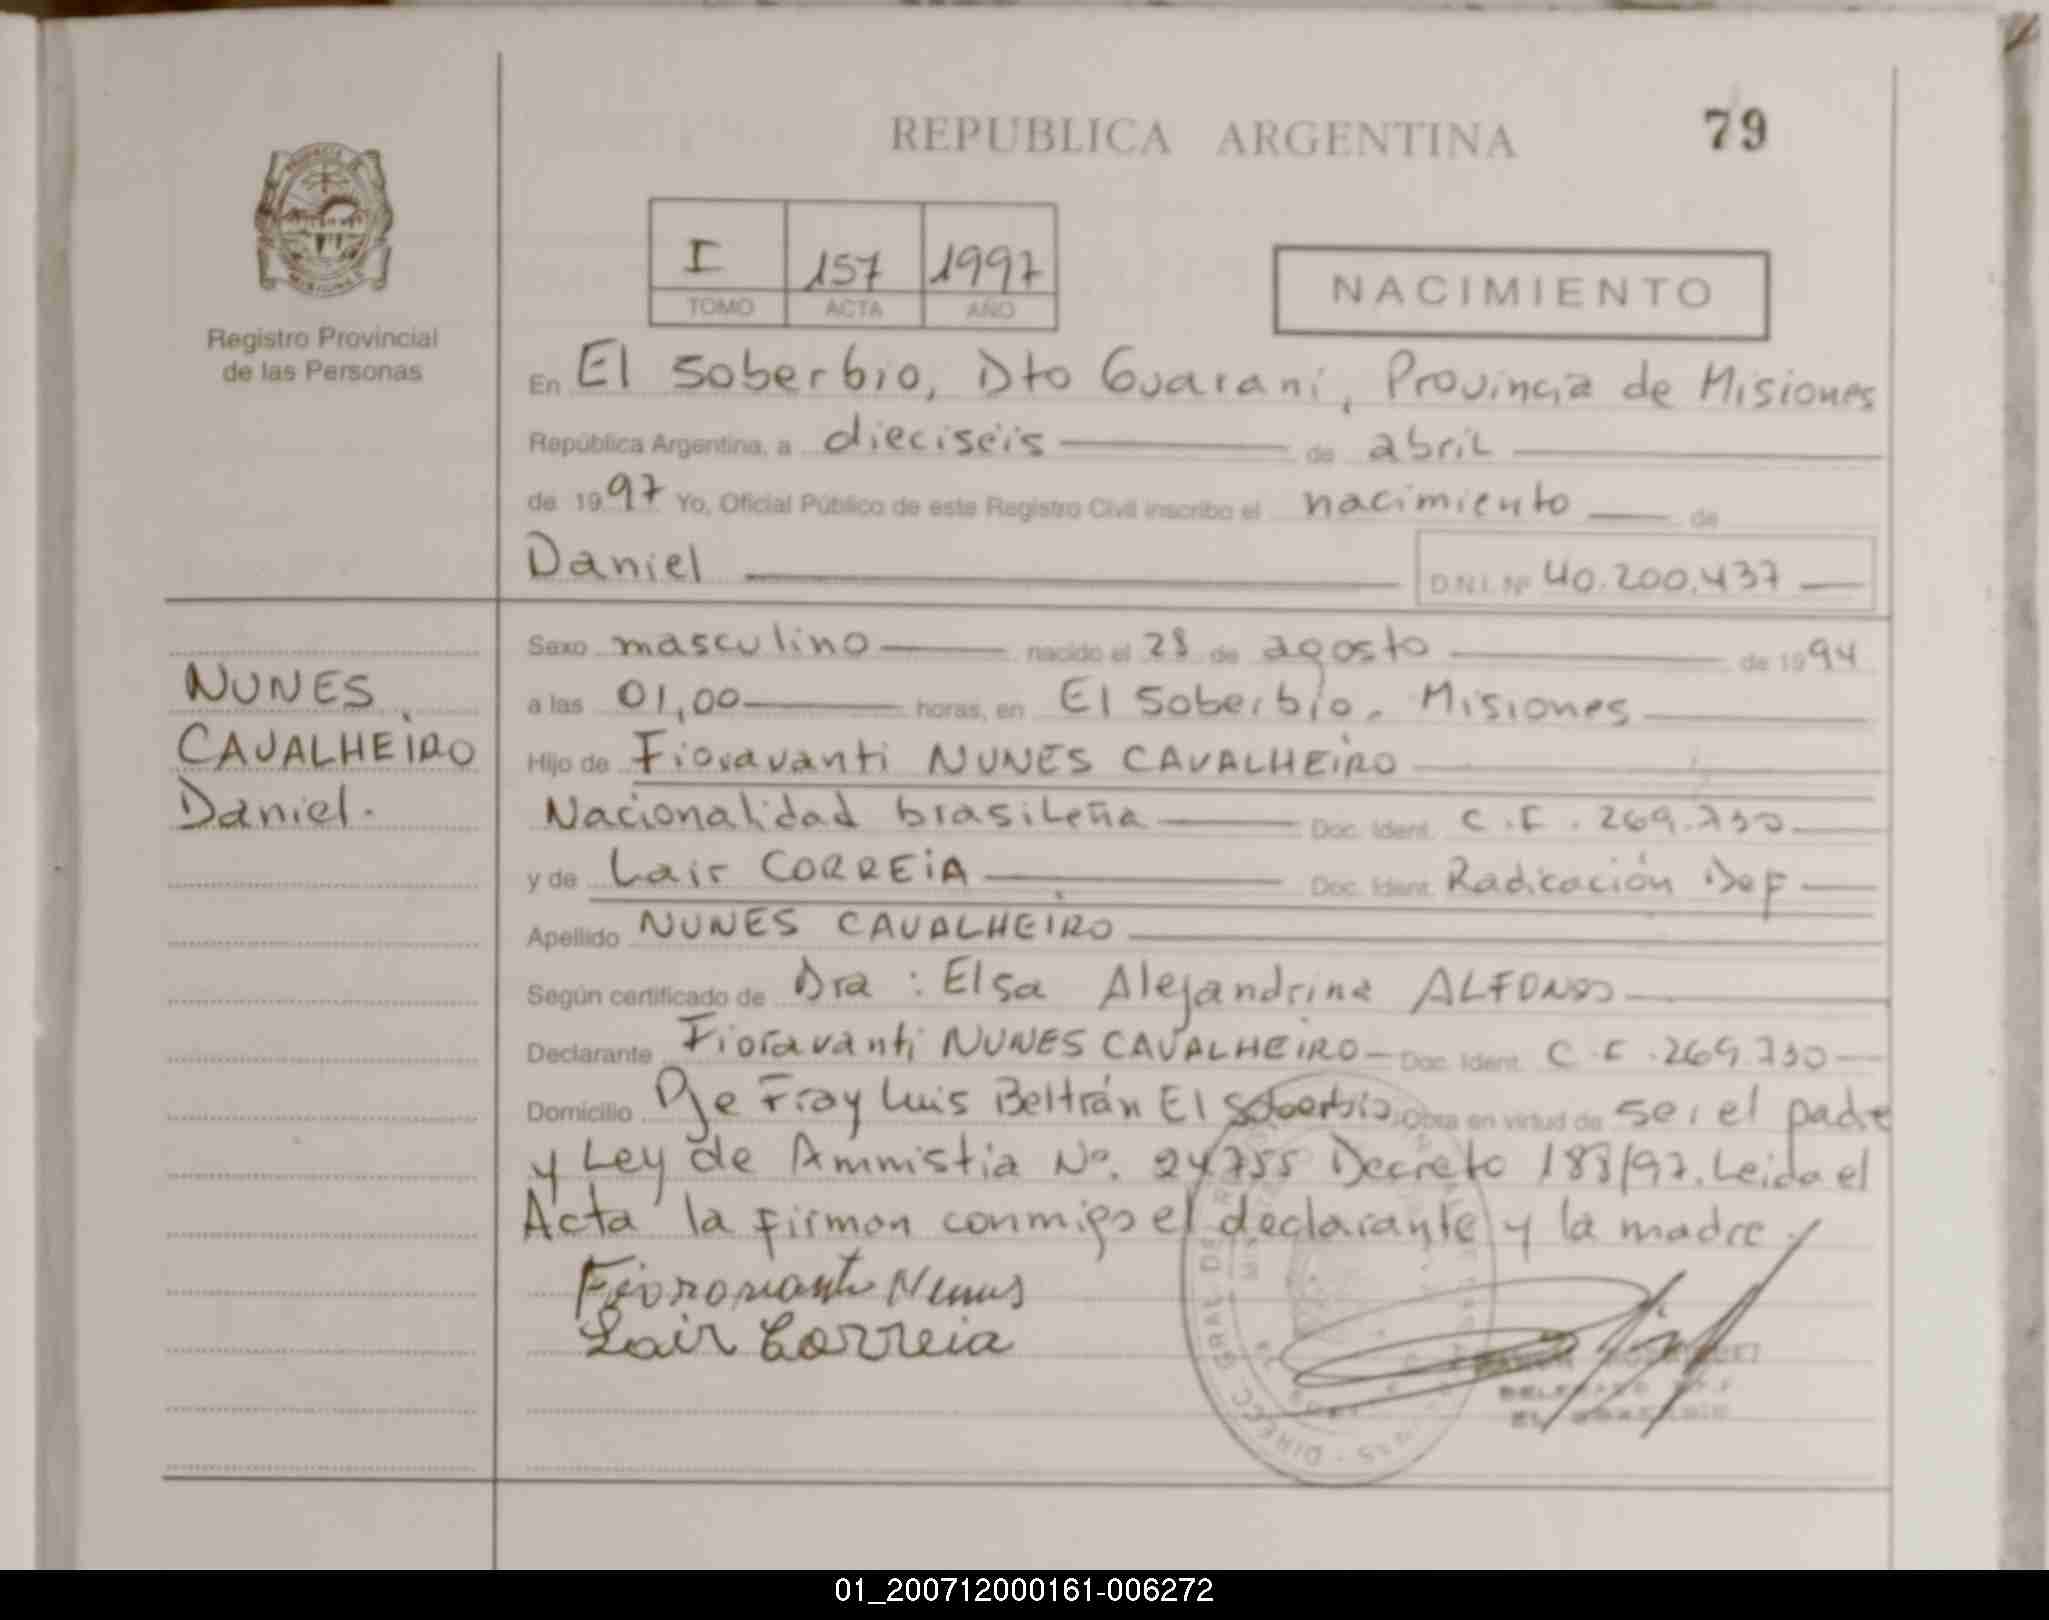 79
REPUBLICA ARGENTINA
I 157 1997
TOMO ACTA AÑO
NACIMIENTO
Registro Provincial
de las Personas
En El Soberbio, Dto Guaraní, Provincia de Misiones
República Argentina, a dieciséis de abril
de 1997 Yo, Oficial Público de este Registro Civil inscribo el nacimiento de
Daniel D.N.I. Nº 40.200.437
NUNES
CAVALHEIRO
Daniel.
Sexo masculino nacido el 28 de agosto de 1994
a las 01,00 horas, en El Soberbio, Misiones
Hijo de Fioravanti NUNES CAVALHEIRO
Nacionalidad brasileña Doc. Ident. C.F. 269.730
y de Lair CORREIA Doc. Ident. Radicación Def
Apellido NUNES CAVALHEIRO
Según certificado de Dra : Elsa Alejandrina ALFONSO
Declarante Fioravanti NUNES CAVALHEIRO Doc. Ident. C.F. 269.730
Domicilio Pje Fray Luis Beltrán El Soberbio Obra en virtud de ser el padre
y Ley de Ammistia Nº. 24755 Decreto 183/97. Leida el
Acta la firman conmigo el declarante y la madre.
Nunes
Lair Correia
DIRECC GRAL DE
DELEGADO
EL SOBERBIO
01_200712000161-006272